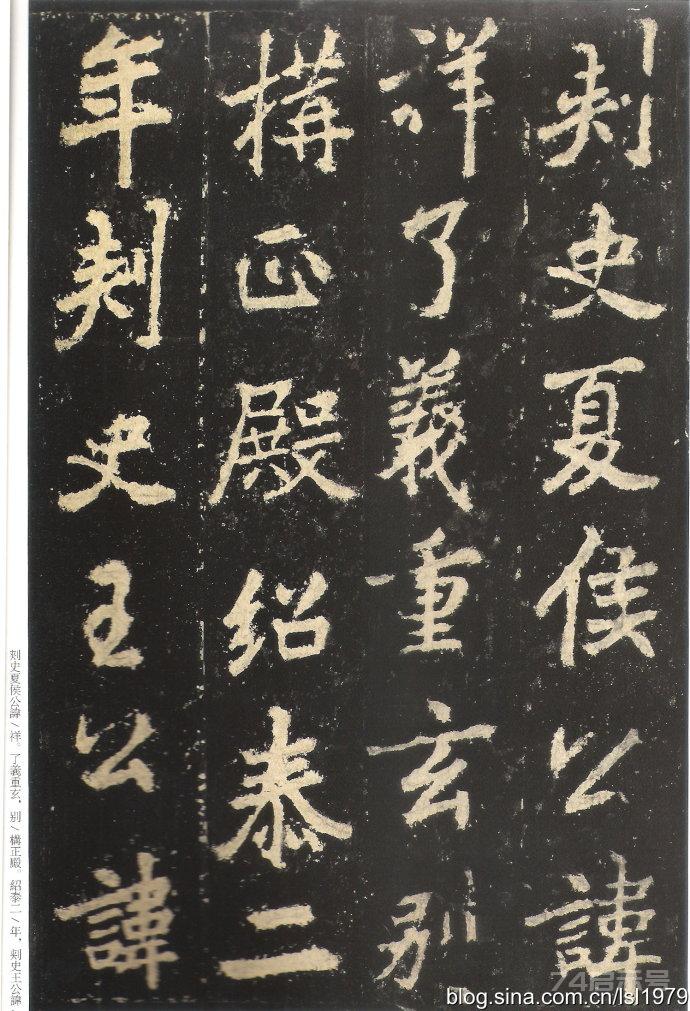 刾史夏侯公諱
詳了義重玄别
構正殿绍泰二
年刾史王公諱
刾史夏侯公諱/祥。了義重玄，别/構正殿。紹泰二/年，刾史王公諱
74启示号
blog.sina.com.cn/lsl1979